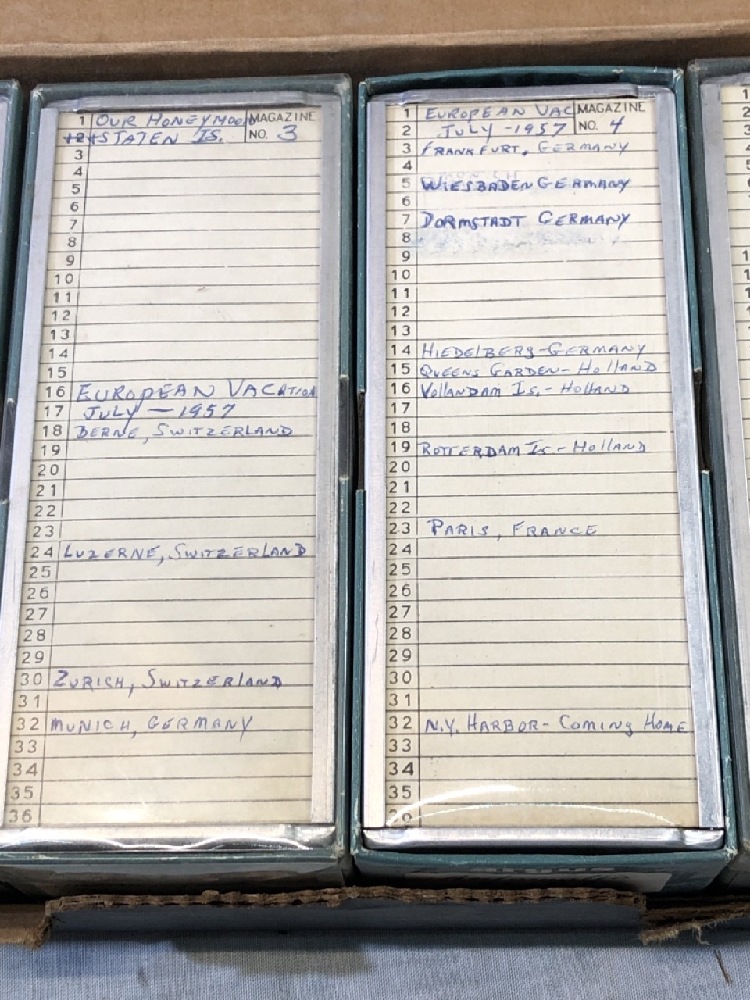 1 OUR HONEYMOON MAGAZINE
2 STATEN IS. NO. 3
3
4
5
6
7
8
9
10
11
12
13
14
15
16 EUROPEAN VACATION
17 JULY — 1957
18 BERNE, SWITZERLAND
19
20
21
22
23
24 LUZERNE, SWITZERLAND
25
26
27
28
29
30 ZURICH, SWITZERLAND
31
32 MUNICH, GERMANY
33
34
35
36
1 EUROPEAN VAC MAGAZINE
2 JULY - 1957 NO. 4
3 FRANKFURT, GERMANY
4
5 WIESBADEN GERMANY
6
7 DORMSTADT GERMANY
8
9
10
11
12
13
14 HIEDELBERG-GERMANY
15 QUEENS GARDEN - HOLLAND
16 VOLLANDAM IS. - HOLLAND
17
18
19 ROTTERDAM IS - HOLLAND
20
21
22
23 PARIS, FRANCE
24
25
26
27
28
29
30
31
32 N.Y. HARBOR - COMING HOME
33
34
35